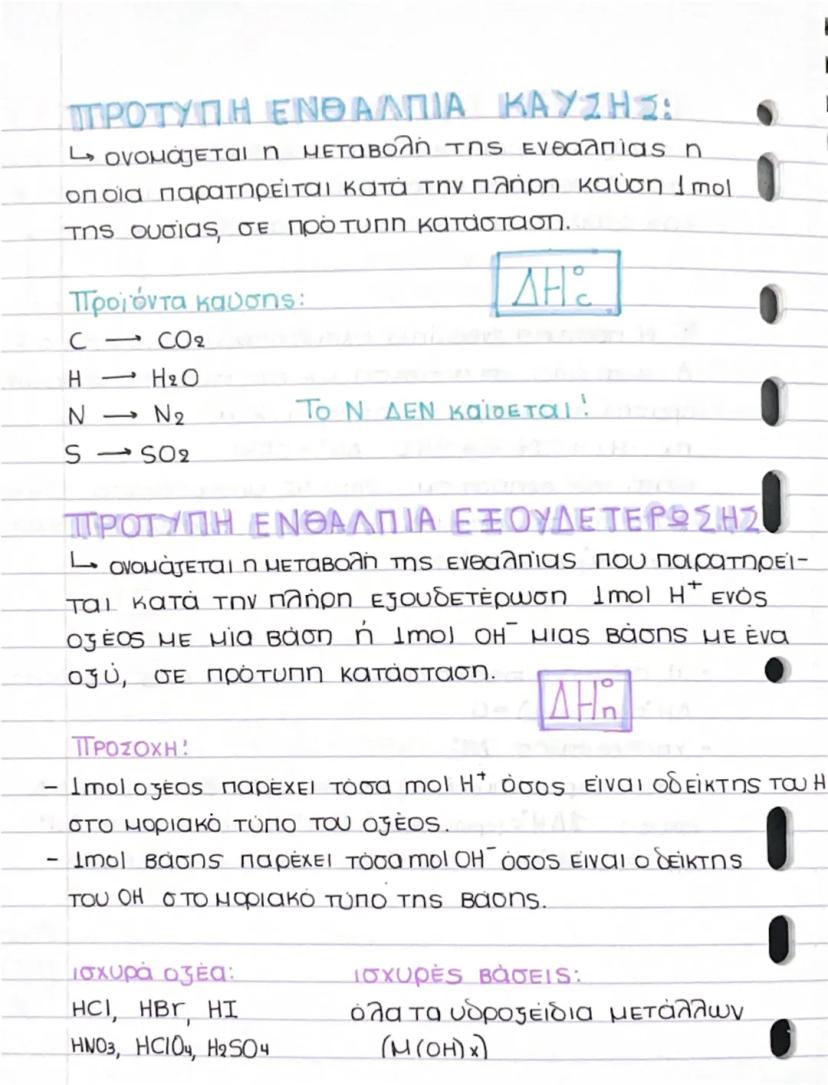 ΠΡΟΤΥΠΗ ΕΝΘΑΛΠΙΑ ΚΑΥΣΗΣ:
↳ ονομάζεται η μεταβολή της ενθαλπίας η
οποία παρατηρείται κατά την πλήρη καύση 1mol
της ουσίας, σε πρότυπη κατάσταση.
ΔH°c
Προϊόντα καύσης:
C → CO₂
H → H₂O
N → N₂ Το Ν ΔΕΝ καίγεται!
S → SO₂
ΠΡΟΤΥΠΗ ΕΝΘΑΛΠΙΑ ΕΞΟΥΔΕΤΕΡΩΣΗΣ
↳ ονομάζεται η μεταβολή της ενθαλπίας που παρατηρεί-
ται κατά την πλήρη εξουδετέρωση 1mol H⁺ ενός
οξέος με μία βάση ή 1mol OH⁻ μιας βάσης με ένα
οξύ, σε πρότυπη κατάσταση.
ΔH°n
ΠΡΟΣΟΧΗ!
- 1mol οξέος παρέχει τόσα mol H⁺ όσος είναι ο δείκτης του Η
στο μοριακό τύπο του οξέος.
- 1mol βάσης παρέχει τόσα mol OH⁻ όσος είναι ο δείκτης
του OH στο μοριακό τύπο της βάσης.
ισχυρά οξέα: ισχυρές βάσεις:
HCl, HBr, HI όλα τα υδροξείδια μετάλλων
HNO₃, HClO₄, H₂SO₄ (M(OH)x)